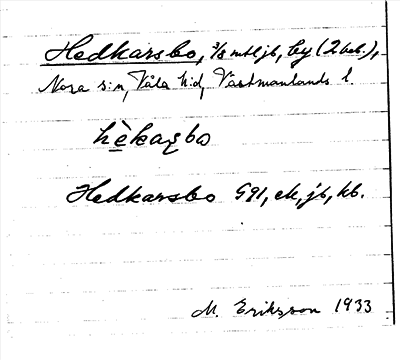 Hedkarsbo, 3/8 mtl jb, by (2 beb.),
Nora s:n, Våla h:d, Västmanlands l.
hèkaʂbω
Hedkarsbo G91, ek, jb, kb.
M. Eriksson 1933